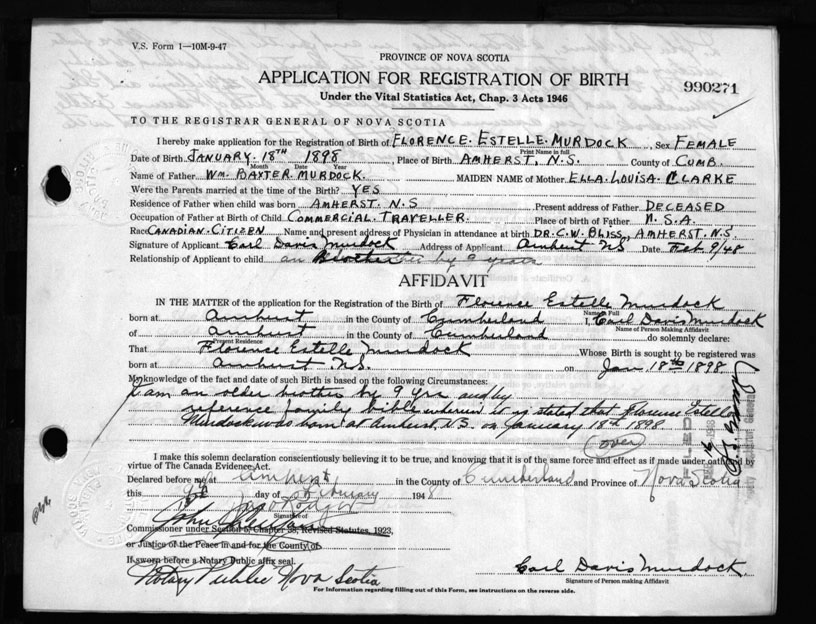 V.S. Form 1—10M-9-47
PROVINCE OF NOVA SCOTIA
APPLICATION FOR REGISTRATION OF BIRTH
990271
Under the Vital Statistics Act, Chap. 3 Acts 1946
TO THE REGISTRAR GENERAL OF NOVA SCOTIA
I hereby make application for the Registration of Birth of FLORENCE ESTELLE MURDOCK, Sex FEMALE
Print Name in full
Date of Birth JANUARY 18TH 1898, Place of Birth AMHERST, N.S. County of CUMB.
Month Date Year
Name of Father WM BAXTER MURDOCK. MAIDEN NAME of Mother ELLA LOUISA CLARKE
Were the Parents married at the time of the Birth? YES
Residence of Father when child was born AMHERST. N.S Present address of Father DECEASED
Occupation of Father at Birth of Child COMMERCIAL TRAVELLER. Place of birth of Father N.S.A.
Race CANADIAN CITIZEN Name and present address of Physician in attendance at birth DR. C. W. BLISS, AMHERST. N.S.
Signature of Applicant Carl Davis Murdock Address of Applicant Amherst NS Date Feb. 9/48
Relationship of Applicant to child an Brother by 9 years
AFFIDAVIT
IN THE MATTER of the application for the Registration of the Birth of Florence Estelle Murdock
Name in Full
born at Amherst in the County of Cumberland I, Carl Davis Murdock
Name of Person Making Affidavit
of Amherst in the County of Cumberland do solemnly declare:
Present Residence
That Florence Estelle Murdock Whose Birth is sought to be registered was
born at Amherst N.S. on Jan 18th 1898
My knowledge of the fact and date of such Birth is based on the following Circumstances:
I am an older brother by 9 yrs and by
reference family bible wherein it is stated that Florence Estelle
Murdock was born at Amherst, N.S. on January 18th 1898
(over)
I make this solemn declaration conscientiously believing it to be true, and knowing that it is of the same force and effect as if made under oath by
virtue of The Canada Evidence Act.
Declared before me at Amherst, in the County of Cumberland and Province of Nova Scotia
this 9th day of February 1948
Signature of
Commissioner under Section of Chapter 38, Revised Statutes, 1923,
or Justice of the Peace in and for the County of
If sworn before a Notary Public affix seal.
Notary Public Nova Scotia
Carl Davis Murdock
Signature of Person making Affidavit
For Information regarding filling out of this Form, see instructions on the reverse side.